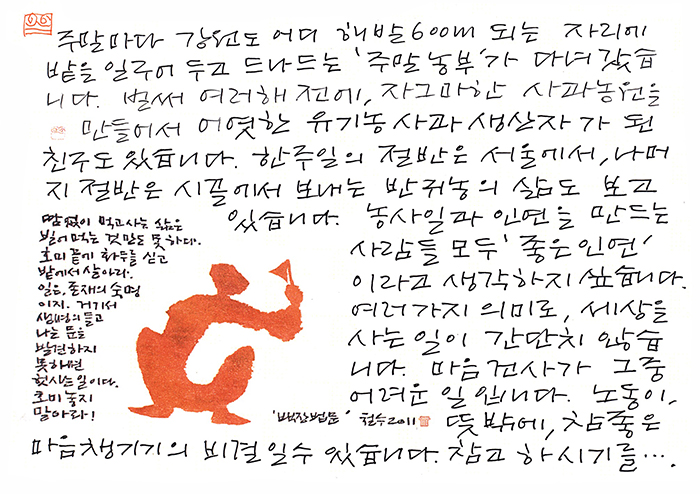 주말마다 강원도 어디 해발 600m 되는 자리에
밭을 일구어 두고 드나드는 '주말농부'가 다녀갔습
니다. 벌써 여러해 전에, 자그마한 사과농원을
만들어서 어엿한 유기농사과 생산자가 된
친구도 있습니다. 한주일의 절반은 서울에서, 나머
지 절반은 시골에서 보내는 반귀농의 삶도 보고
있습니다. 농사일과 인연을 만드는
사람들 모두 '좋은인연'
이라고 생각하지 싶습니다.
여러가지 의미로, 세상을
사는 일이 간단치 않습
니다. 마음건사가 그중
어려운 일입니다. 노동이,
뜻밖에, 참좋은
마음챙기기의 비결일수 있습니다. 참고하시기를….
땀없이 먹고사는 삶은
빌어먹는 것만도 못하다.
호미 끝에 화두를 싣고
밭에서 살아라.
일은, 존재의 숙명
이지. 거기서
생명의 들고
나는 문을
발견하지
못하면
헛사는 일이다.
호미 놓지
말아라!
'백장법문' 철수 2011